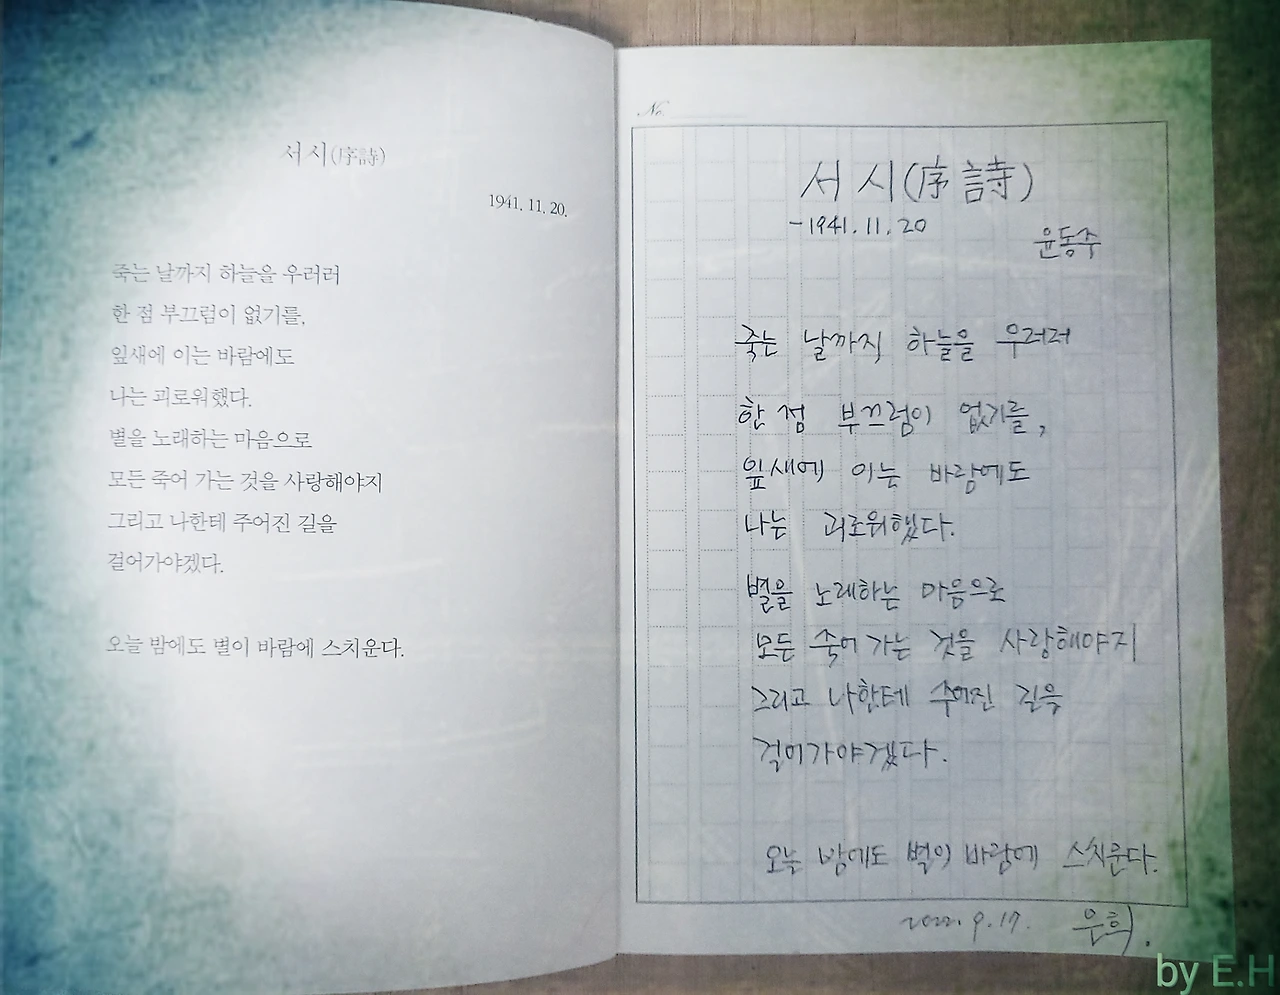 서시(序詩)
1941. 11. 20.
죽는 날까지 하늘을 우러러
한 점 부끄럼이 없기를,
잎새에 이는 바람에도
나는 괴로워했다.
별을 노래하는 마음으로
모든 죽어 가는 것을 사랑해야지
그리고 나한테 주어진 길을
걸어가야겠다.
오늘 밤에도 별이 바람에 스치운다.
No.
서시(序詩)
-1941. 11. 20
윤동주
죽는 날까지 하늘을 우러러
한 점 부끄럼이 없기를,
잎새에 이는 바람에도
나는 괴로워했다.
별을 노래하는 마음으로
모든 죽어 가는 것을 사랑해야지
그리고 나한테 주어진 길을
걸어가야겠다.
오늘 밤에도 별이 바람에 스치운다.
2022. 9. 17. 은희.
by E.H